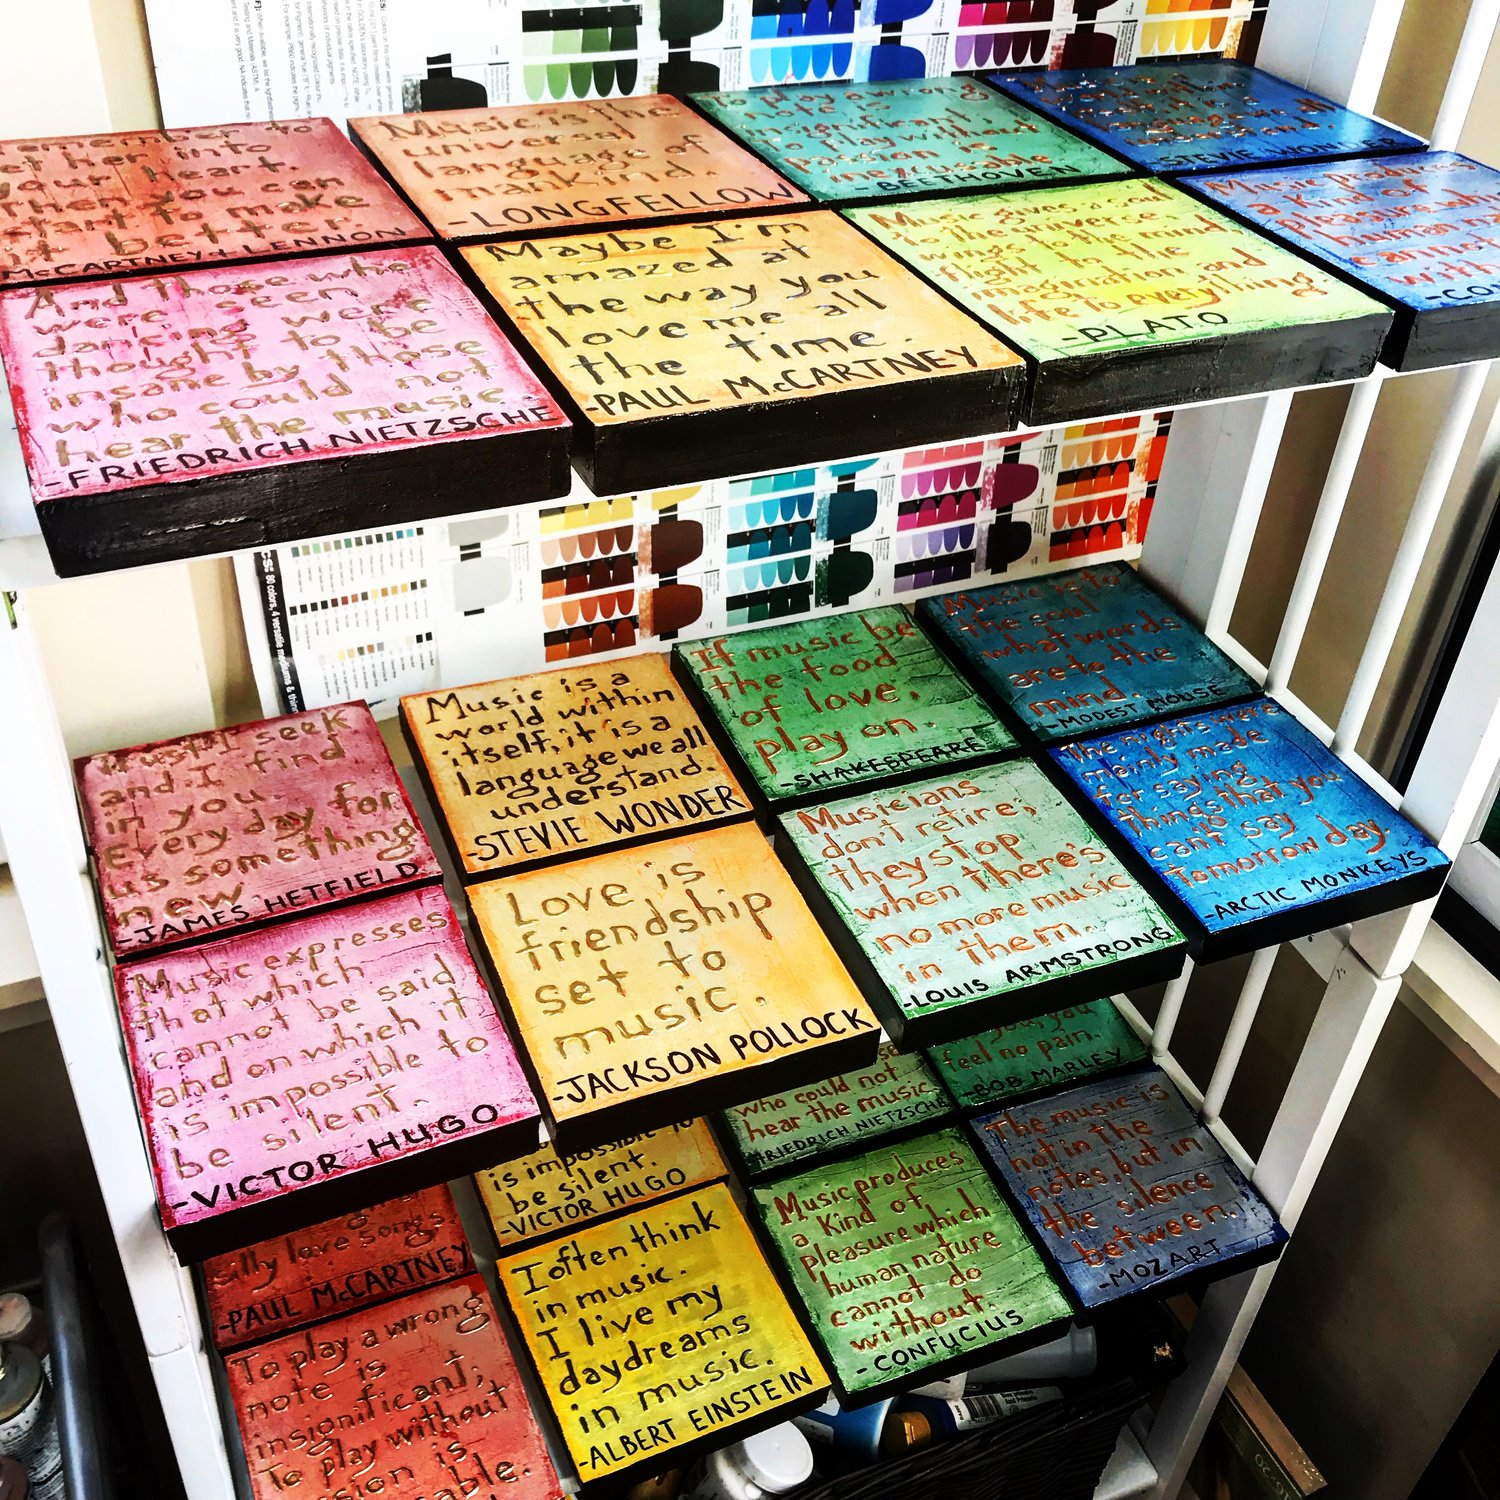 to
her into
your heart.
Then you can
start to make
it better.
McCARTNEY + LENNON
Music is the
universal
language of
mankind.
-LONGFELLOW
To play a wrong
note is
insignificant;
to play without
passion is
inexcusable
-BEETHOVEN
-STEVIE WONDER
And those who
were seen
dancing were
thought to be
insane by those
who could not
hear the music.
-FRIEDRICH NIETZSCHE
Maybe I'm
amazed at
the way you
love me all
the time.
-PAUL McCARTNEY
Music gives a soul
to the universe
wings to the mind
flight to the
imagination and
life to everything.
-PLATO
Music produces
a kind of
pleasure which
human
cannot
with
-CO
I seek
and I find
in you.
Every day for
us something
new
-JAMES HETFIELD
Music is a
world within
itself, it is a
language we all
understand.
-STEVIE WONDER
If music be
the food
of love,
play on.
-SHAKESPEARE
Music is to
the soul
what words
are to the
mind.
-MODEST MOUSE
Music expresses
that which
cannot be said
and on which it
is impossible to
be silent.
-VICTOR HUGO
Love is
friendship
set to
music.
-JACKSON POLLOCK
Musicians
don't retire;
they stop
when there's
no more music
in them.
-LOUIS ARMSTRONG
The nights were
mainly made
for saying
things that you
can't say
tomorrow day.
-ARCTIC MONKEYS
silly love songs.
-PAUL McCARTNEY
is impossible to
be silent.
-VICTOR HUGO
who could not
hear the music.
FRIEDRICH NIETZSCHE
you, you
feel no pain.
-BOB MARLEY
To play a wrong
note is
insignificant;
To play without
ssion is
able.
I often think
in music.
I live my
daydreams
in music.
-ALBERT EINSTEIN
Music produces
a kind of
pleasure which
human nature
cannot do
without.
-CONFUCIUS
The music is
not in the
notes, but in
the silence
between.
-MOZART